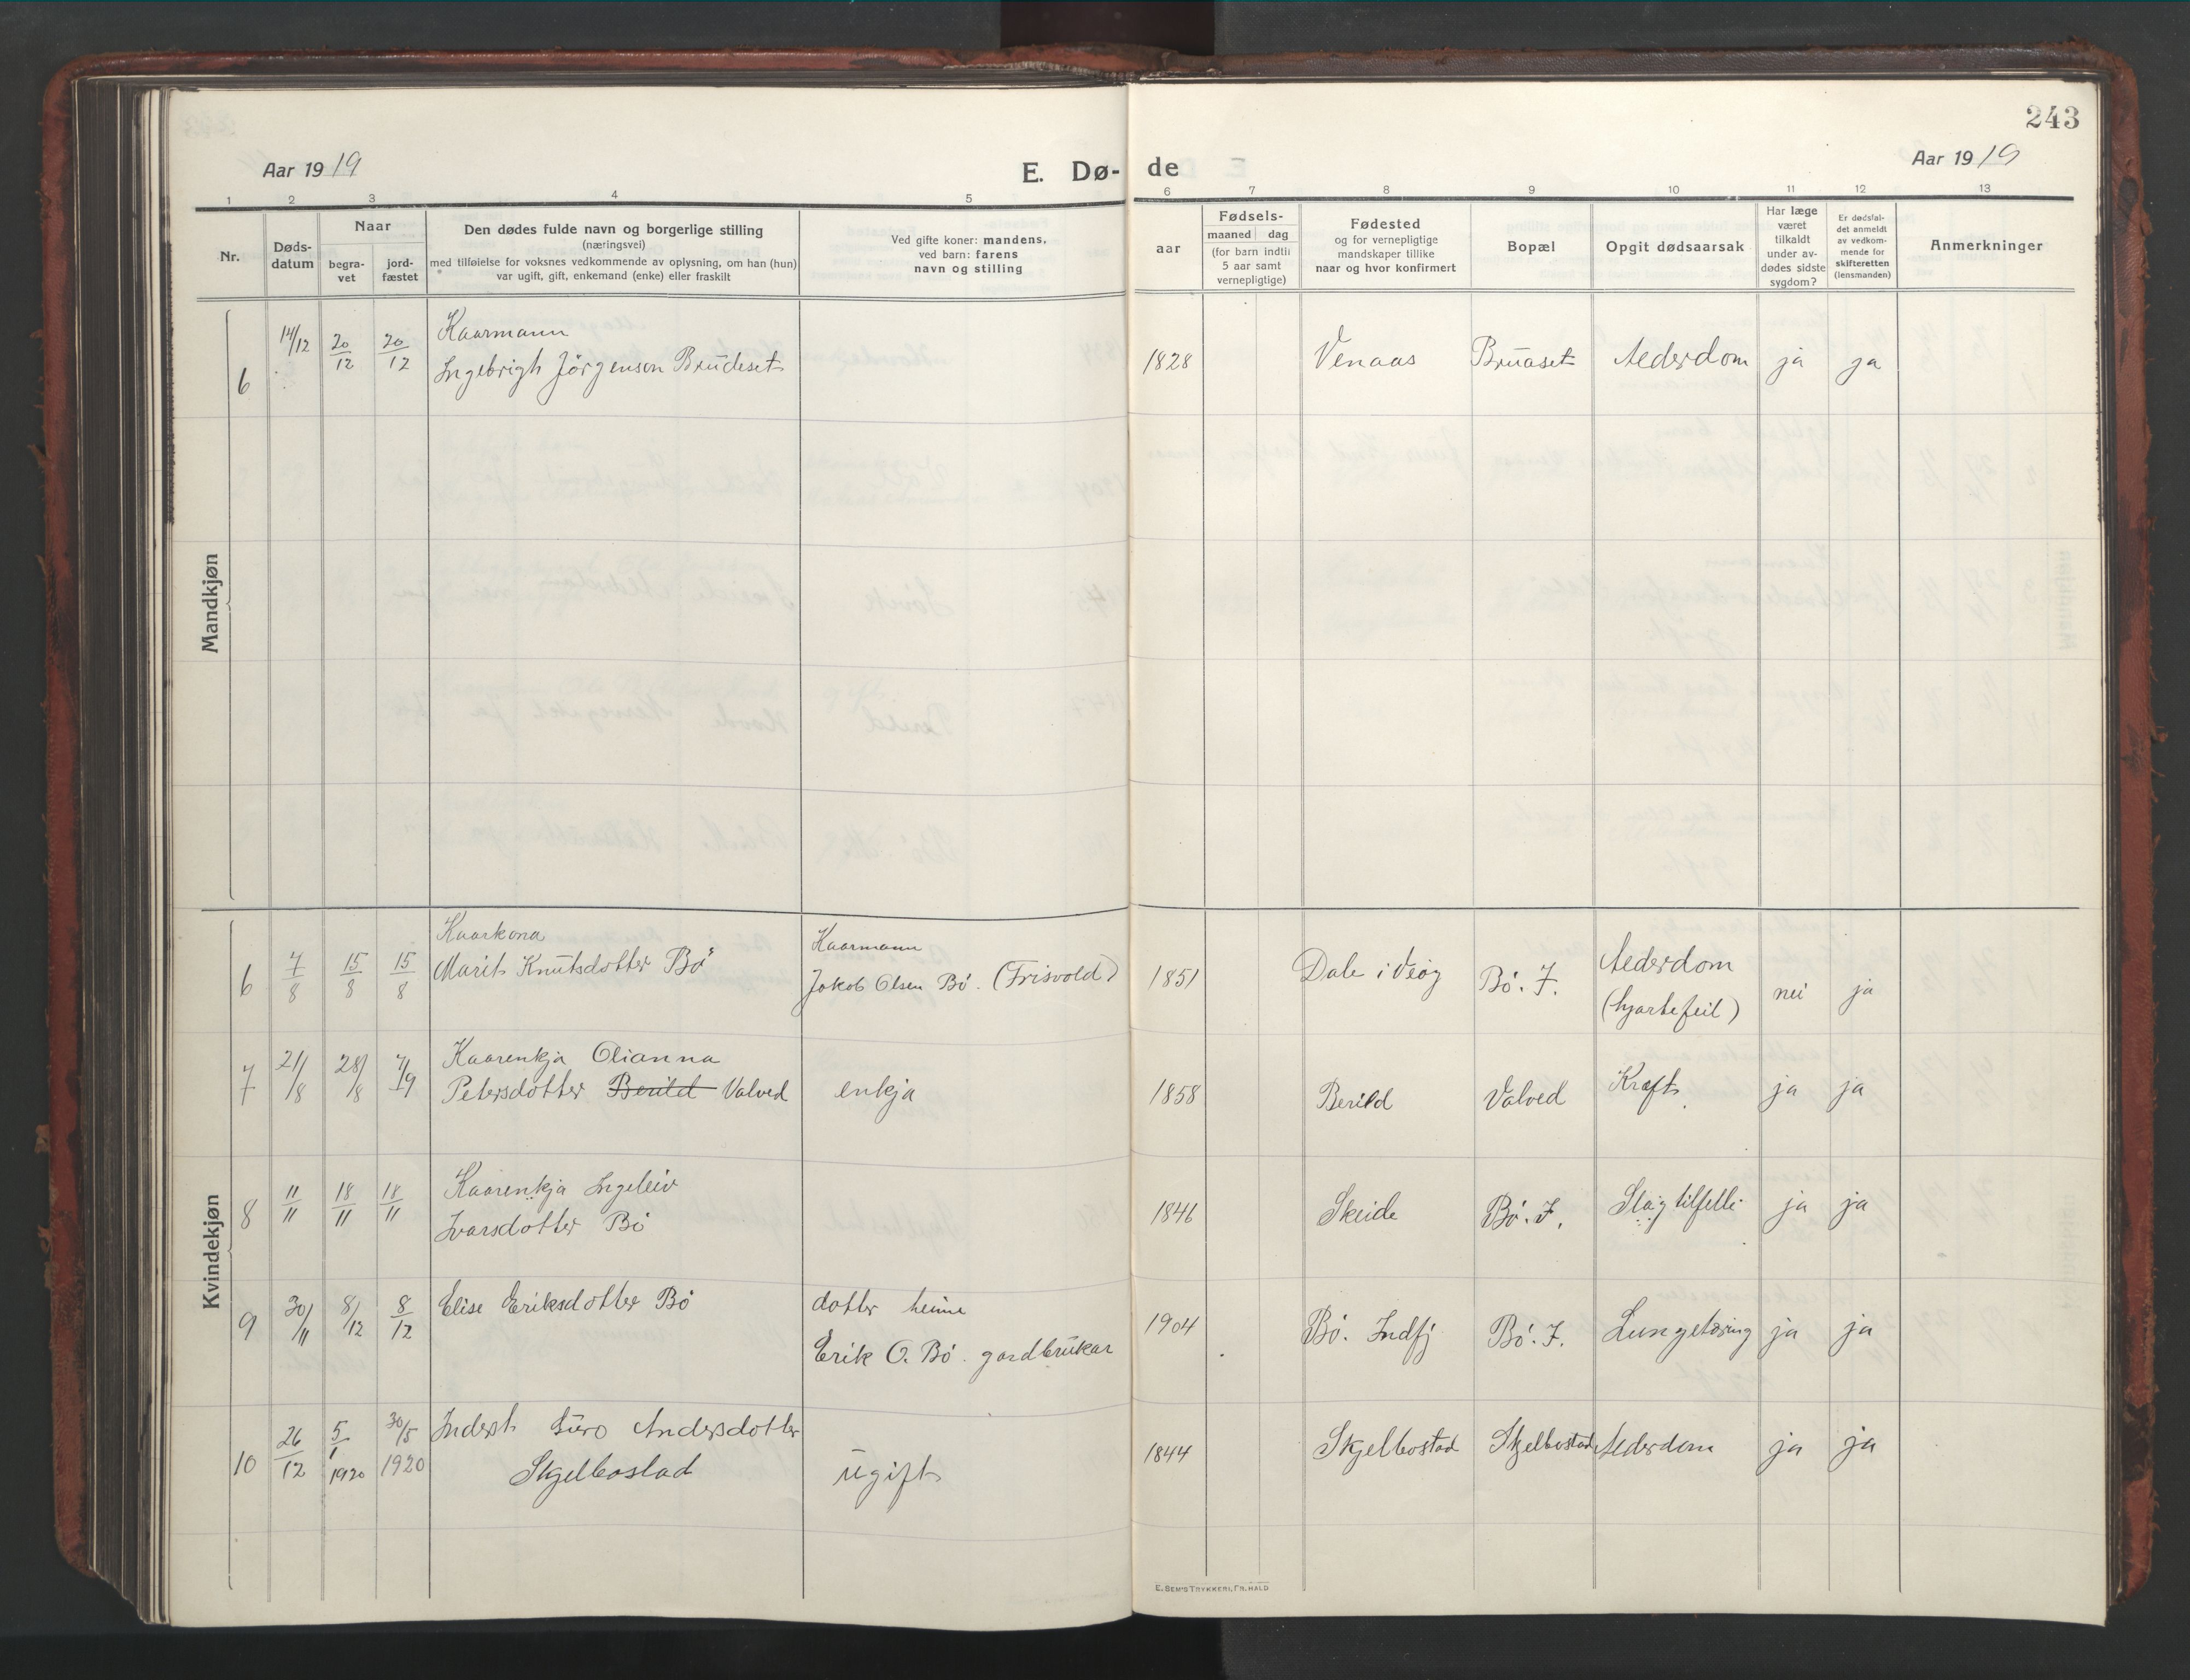 243
Aar 1919
E. Dø-de
Aar 1919
1 2 3 4 5 6 7 8 9 10 11 12 13
Nr.
Døds-
datum
Naar
begra-
vet
jord-
fæstet
Den dødes fulde navn og borgerlige stilling
(næringsvei)
med tilføielse for voksnes vedkommende av oplysning, om han (hun)
var ugift, gift, enkemand (enke) eller fraskilt
Ved gifte koner: mandens,
ved barn: farens
navn og stilling
aar
Fødsels-
maaned dag
(for barn indtil
5 aar samt
vernepligtige)
Fødested
og for vernepligtige
mandskaper tillike
naar og hvor konfirmert
Bopæl
Opgit dødsaarsak
Har læge
været
tilkaldt
under av-
dødes sidste
sygdom?
Er dødsfal-
det anmeldt
av vedkom-
mende for
skifteretten
(lensmanden)
Anmerkninger
Mandkjøn
6 14/12 20/12 20/12 Kaarmann
Ingebrigt Jörgenson Brudeset 1828 Venaas Bruaset Alderdom ja ja
Kvindekjøn
6 7/8 15/8 15/8 Kaarkona
Marit Knutsdotter Bö
Kaarmann
Jakob Olsen Bö. (Frisvold) 1851 Dale i Veöy Bö. J. Alderdom
(hjartefeil) nei ja
7 21/8 28/8 7/9 Kaarenkja Olianna
Petersdotter Berild Valved enkja 1858 Berild Valved Kræft ja ja
8 11/11 18/11 18/11 Kaarenkja Ingeleiv
Ivarsdotter Bö 1846 Skeide Bö. J. Slagtilfelli ja ja
9 30/11 8/12 8/12 Elise Eriksdotter Bö dotter heime
Erik O. Bö. gardbrukar 1904 Bö. Indfj Bö. J. Lungetæring ja ja
10 26/12 5/1 1920 30/5 1920 Inderst Guro Andersdotter
Skjelbostad ugift 1844 Skjelbostad Skjelbostad Alderdom ja ja
E. SEM'S TRYKKERI, FR. HALD